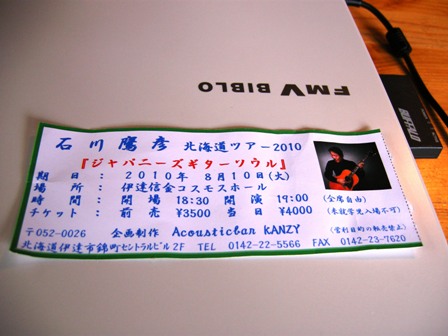 FMV BIBLO
石川鷹彦 北海道ツアー2010
『ジャパニーズギターソウル』
期 日 : 2010年 8月10日(火)
場 所 : 伊達信金コスモスホール
時 間 : 開場 18:30 開演 19:00
(全席自由)
チケット : 前売 ¥3500 当日 ¥4000
(未就学児入場不可)
〒052-0026 企画制作 Acousticban KANZY
(営利目的の転売禁止)
北海道伊達市錦町セントラルビル2F TEL 0142-22-5566 FAX 0142-23-7620